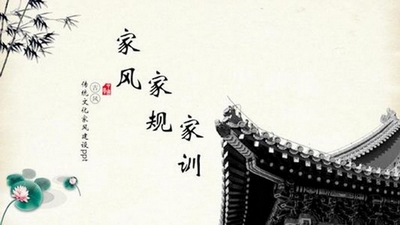 家风
家规
家训
传统文化家风建设ppt